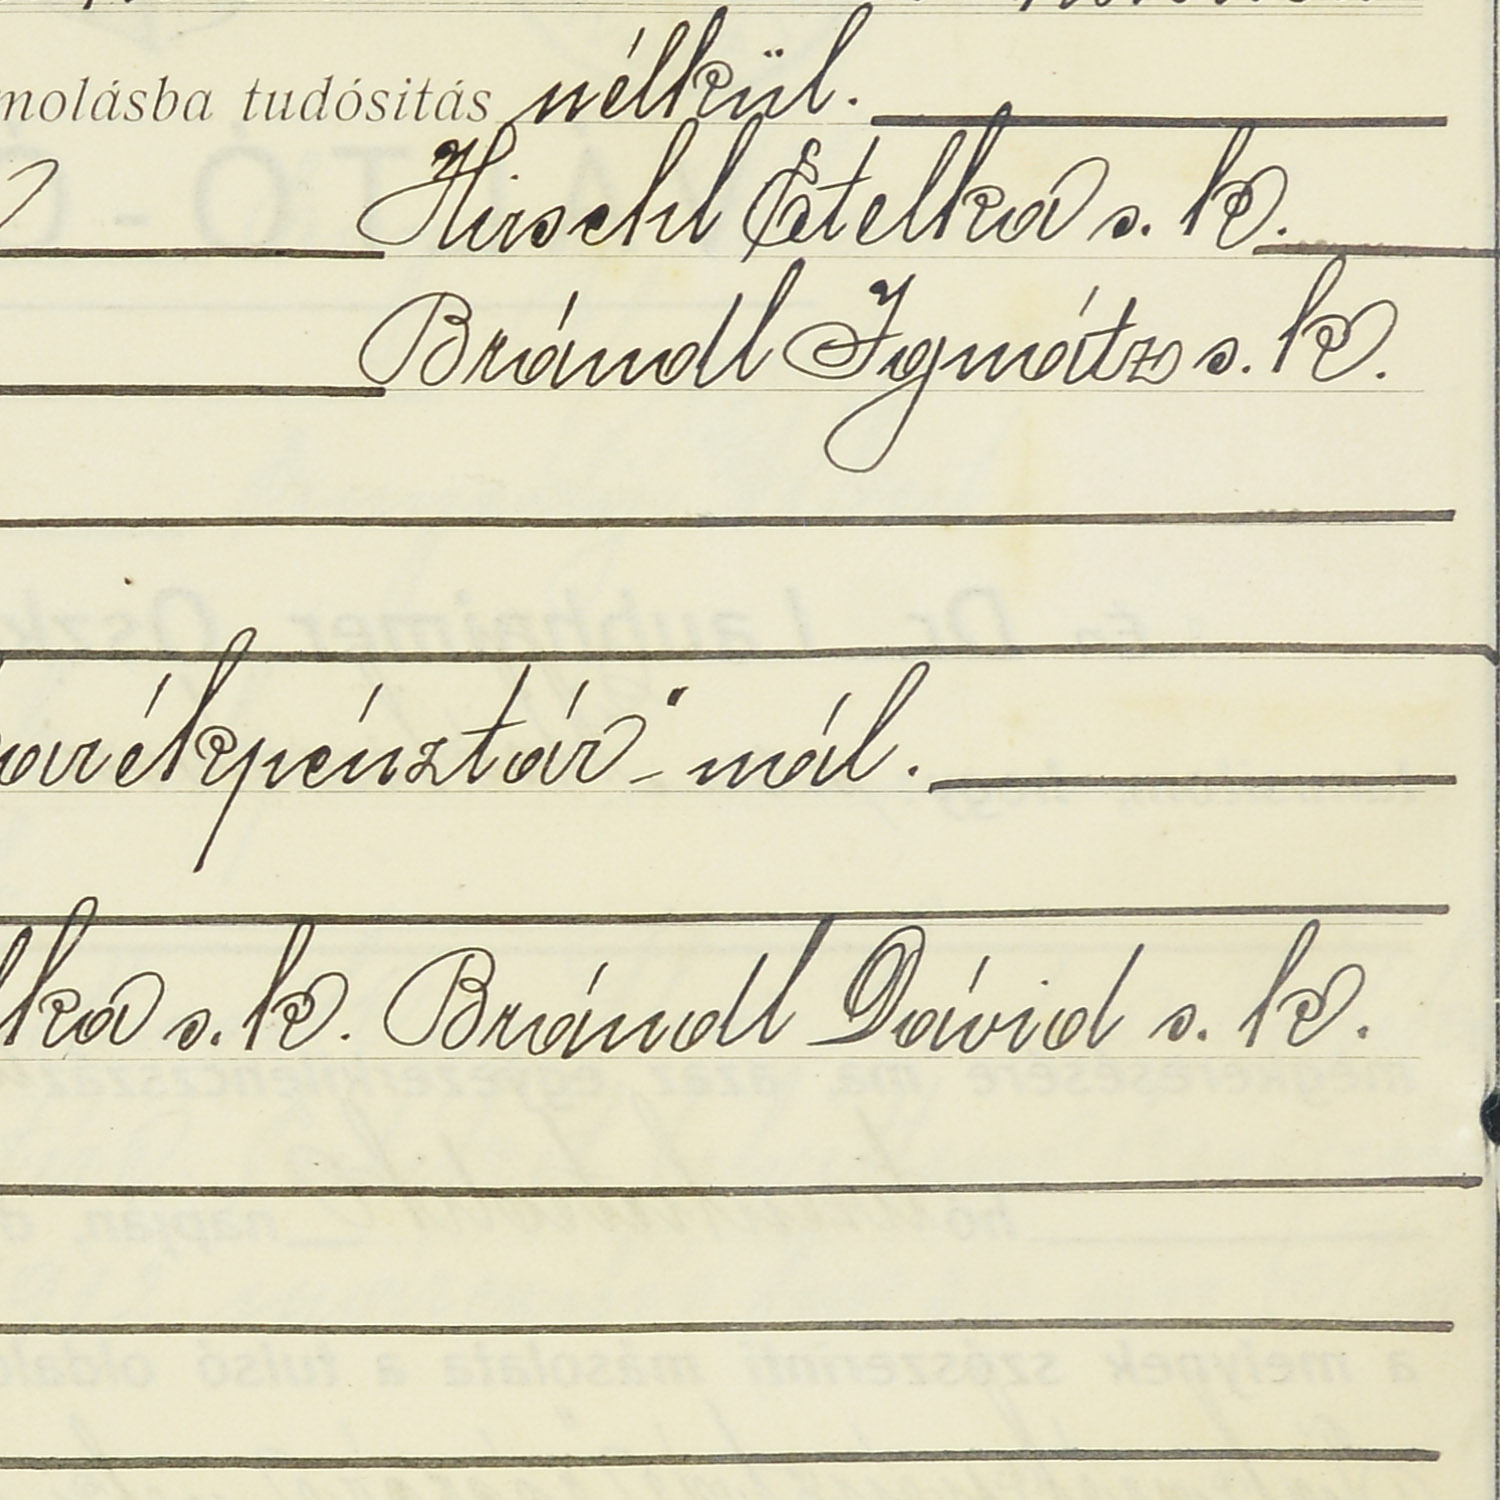 molásba tudósitás nélkül.
Hirschl Etelka s. k.
Brándl Ignátz s. k.
arékpénztár"-nál.
lka s. k. Brándl Dávid s. k.